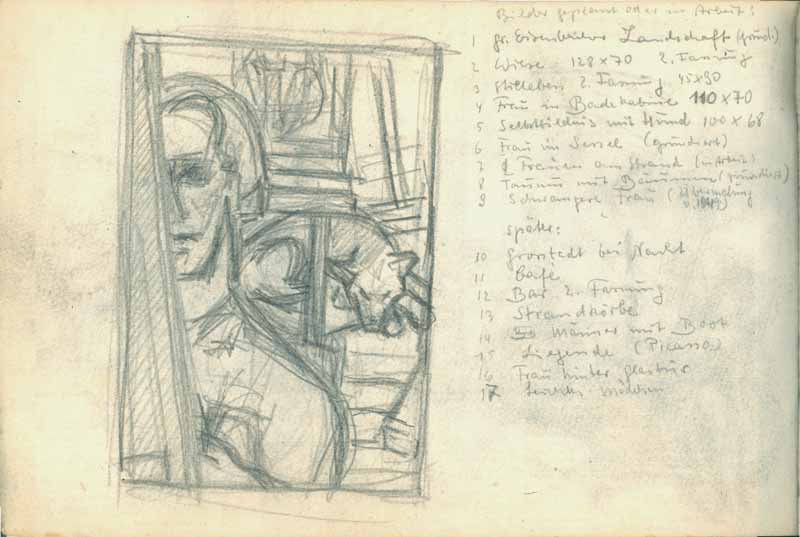 Bilder geplant oder in Arbeit:
1 gr. Landschaft (grund.)
2 Wiese 128 x 70 2. Fassung
3 Stilleben 2. Fassung 45 x 90
4 Frau in Badekabine 110 x 70
5 Selbstbildnis mit Hund 100 x 68
6 Frau im Sessel (grundiert)
7 Frauen am Strand (in Arbeit)
8 mit (grundiert)
9 Schwangere Frau (Übermalung
später:
10 Grosstadt bei Nacht
11 Café
12 Bar 2. Fassung
13 Strandkörbe
14 Männer mit Boot
15 Liegende (Picasso)
16 Frau hinter Glastür
17